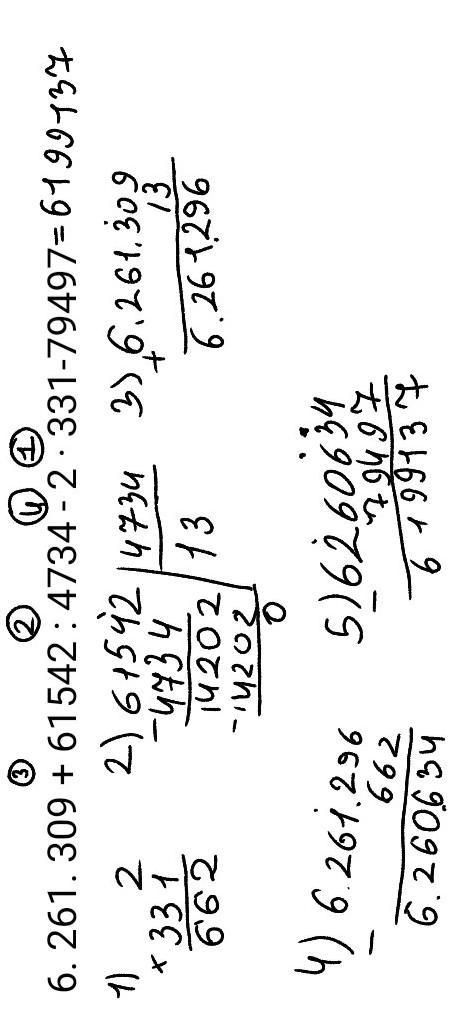 ③ ② ④ ①
6. 261. 309 + 61542 : 4734 - 2 · 331-79497=6199137
1) 2
× 331
662
2) 61542 | 4734
- 4734 | 13
14202
- 14202
0
3) + 6.261.309
13
6.261.296
4) - 6.261.296
662
6.260.634
5) - 6260634
79497
6199137